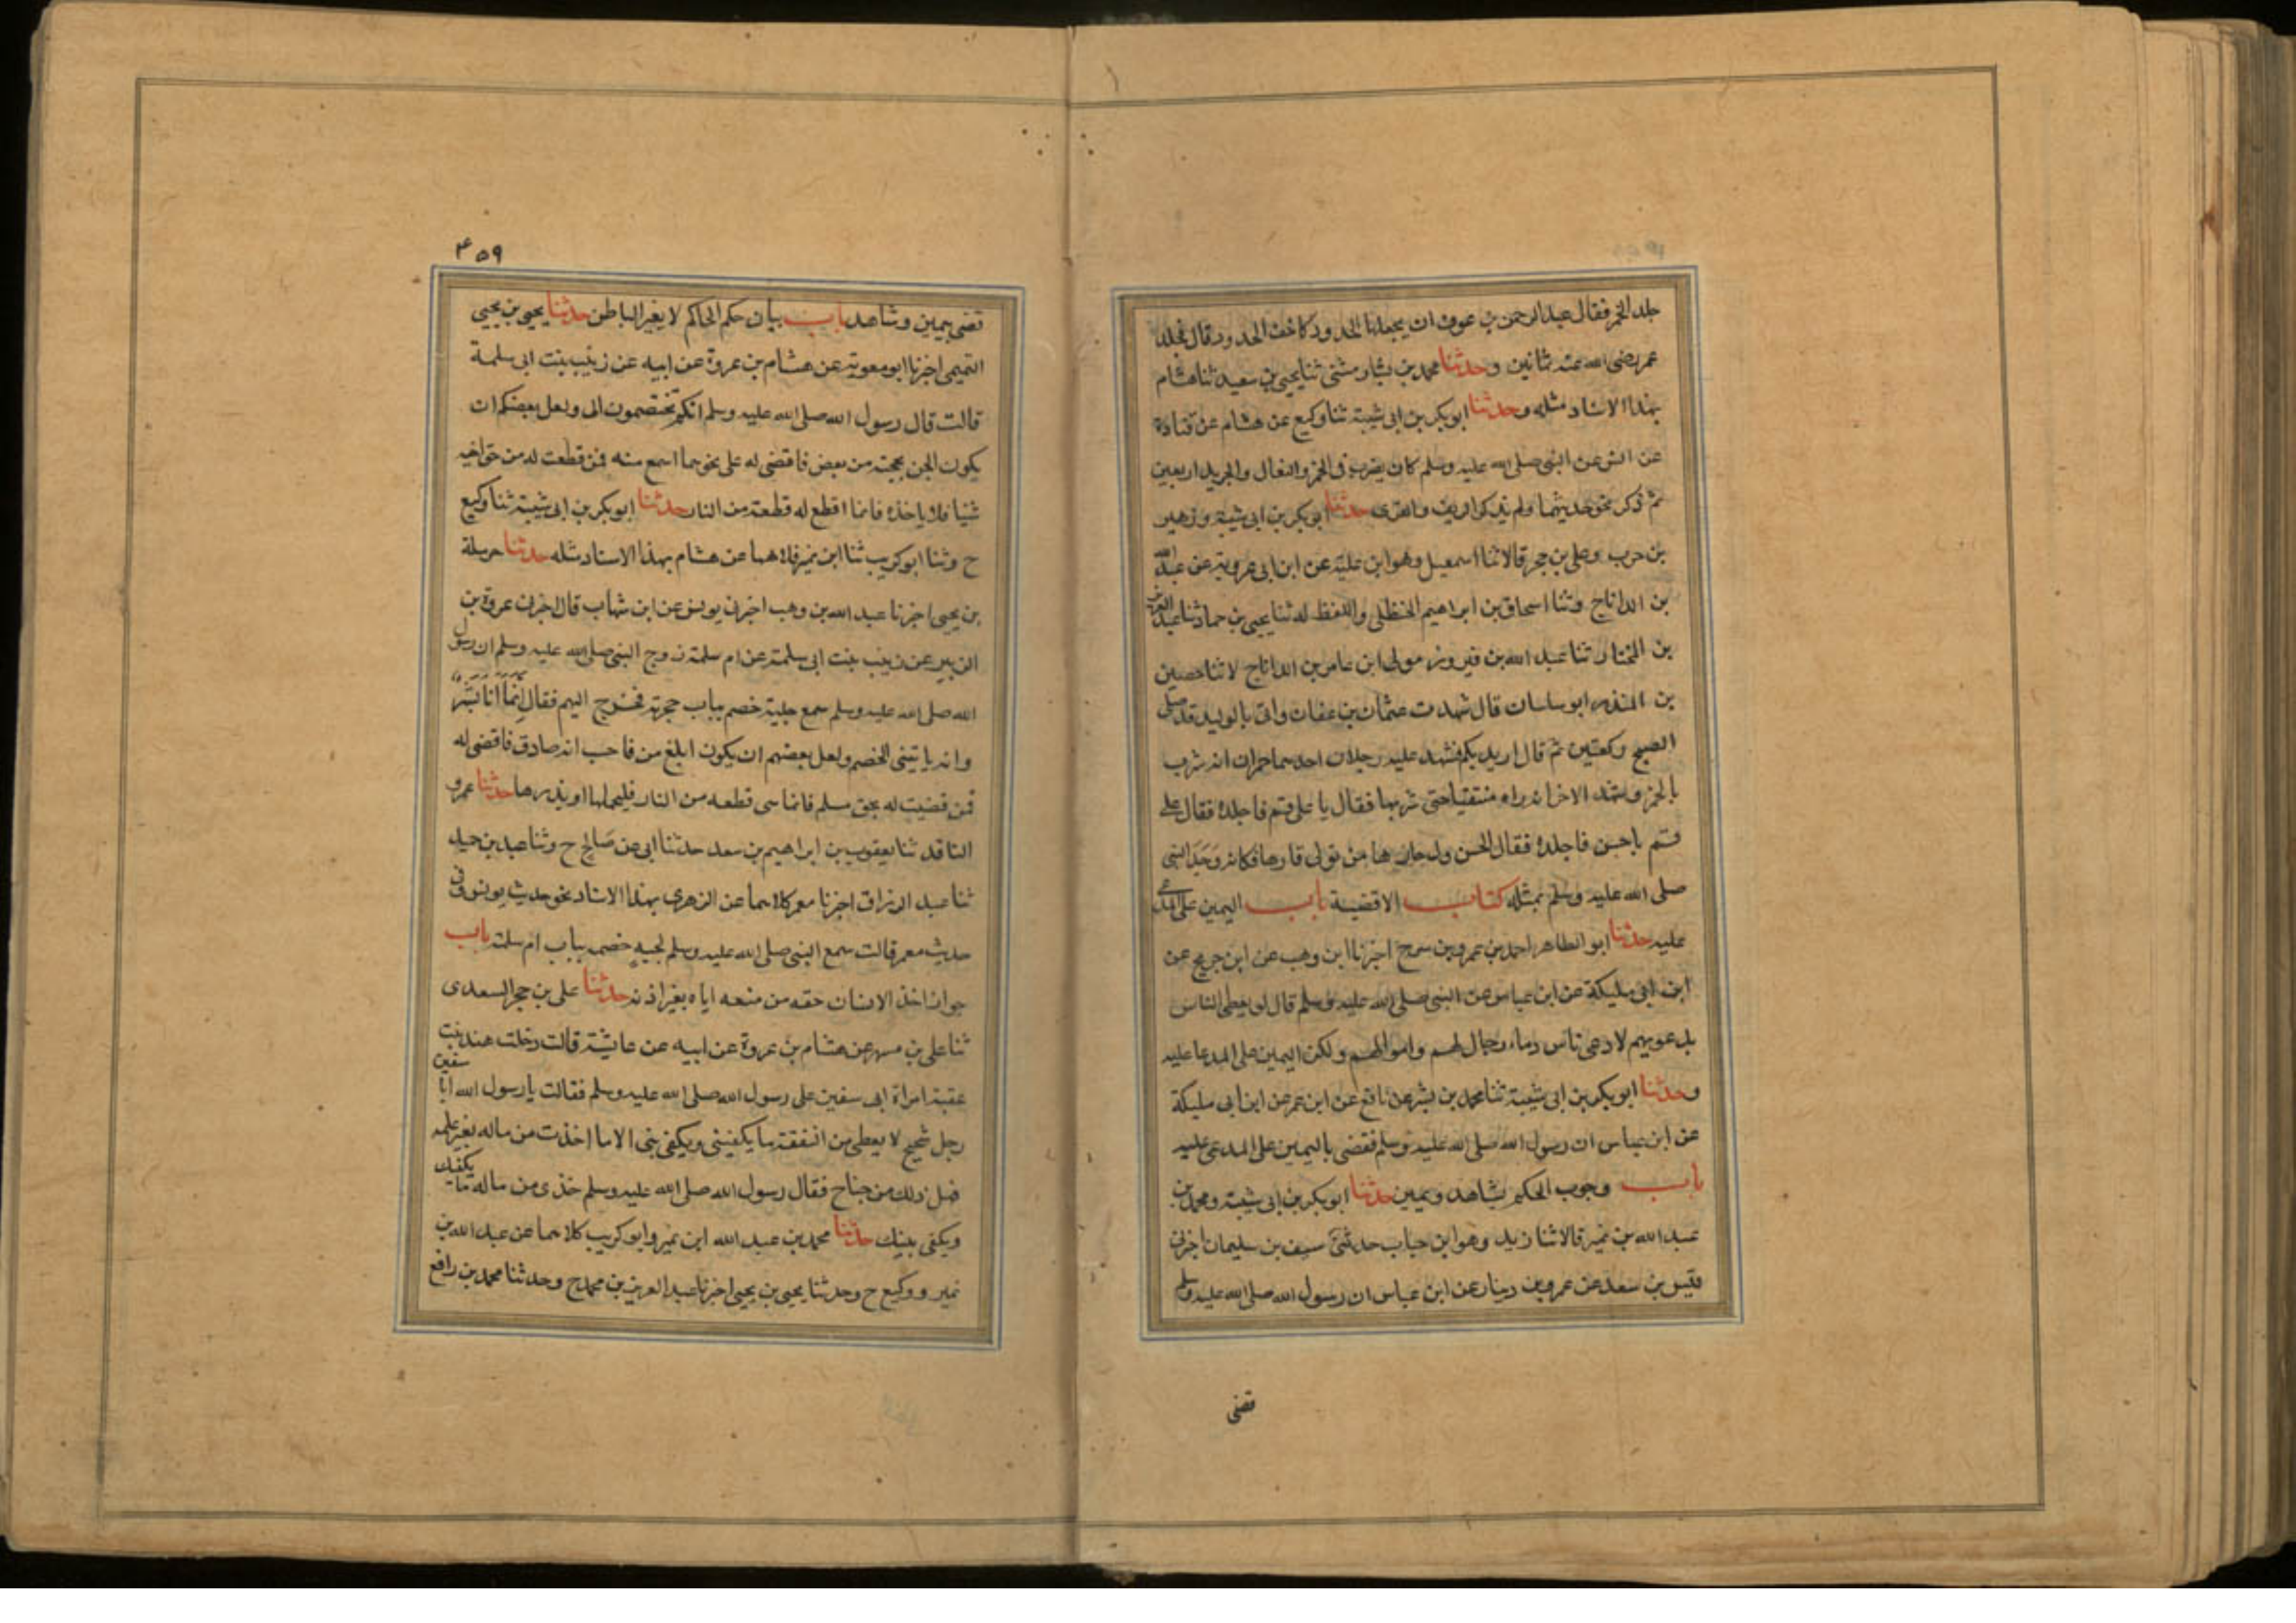 جلد الخمر فقال عبد الرحمن بن عوف ان يجعلها الحدود كاخف الحدود قال فجلد
عمر رضى الله عنه ثمانين وحدثنا محمد بن بشار مثنى ثنا يحيى بن سعيد ثنا هشام
بهذا الاسناد مثله وحدثنا ابو بكر بن ابى شيبة ثنا وكيع عن هشام عن قتادة
عن انس عن النبى صلى الله عليه وسلم كان يضرب فى الخمر والنعال والجريد اربعين
ثم ذكر نحو حديثهما ولم يذكر الريف والقرى حدثنا ابو بكر بن ابى شيبة وزهير
بن حرب وعلى بن حجر قالا ثنا اسمعيل وهو ابن علية عن ابن ابى عروبة عن عبد الله
بن الداناج وثنا اسحاق بن ابراهيم الحنظلى واللفظ له ثنا يحيى بن حماد ثنا عبد العزيز
بن المختار ثنا عبد الله بن فيروز مولى ابن عامر بن الداناج لا ثنا حصين
بن المنذر ابو ساسان قال شهدت عثمان بن عفان واتى بالوليد قد صلى
الصبح ركعتين ثم قال ازيدكم فشهد عليه رجلان احدهما حمران انه شرب
بالخمر وشهد الاخر انه راه يتقيا حتى شربها فقال يا على قم فاجلده فقال على
قم يا حسن فاجلده فقال الحسن ول حارها من تولى قارها فكانه وجد النبى
صلى الله عليه وسلم بمثله كتاب الاقضية باب اليمين على المدعى
عليه حدثنا ابو الطاهر احمد بن عمرو بن سرح اخبرنا ابن وهب عن ابن جريج عن
ابن ابى مليكة عن ابن عباس عن النبى صلى الله عليه وسلم قال لو يعطى الناس
بدعويهم لادعى ناس دماء رجال لهم واموالهم ولكن اليمين على المدعا عليه
وحدثنا ابو بكر بن ابى شيبة ثنا محمد بن بشر عن نافع عن ابن عمر عن ابن ابى مليكة
عن ابن عباس ان رسول الله صلى الله عليه وسلم فقضى باليمين على المدعى عليه
باب وجوب الحكم بشاهد ويمين حدثنا ابو بكر بن ابى شيبة ومحمد بن
عبد الله بن نمير قالا ثنا زيد وهو ابن حباب حدثنى سيف بن سليمان اخبرنى
قيس بن سعد عن عمرو بن دينار عن ابن عباس ان رسول الله صلى الله عليه وسلم
قضى
۴۵۹
قضى بيمين وشاهد باب بيان حكم الحاكم لا يغير الباطن حدثنا يحيى بن يحيى
التميمى اخبرنا ابو معوية عن هشام بن عروة عن ابيه عن زينب بنت ابى سلمة
قالت قال رسول الله صلى الله عليه وسلم انكم تختصمون الى ولعل بعضكم ان
يكون الحن بحجته من بعض فاقضى له على نحو مما اسمع منه فمن قطعت له من حق اخيه
شيئا فلا ياخذه فانما اقطع له قطعة من النار حدثنا ابو بكر بن ابى شيبة ثنا وكيع
ح وثنا ابو كريب ثنا ابن نمير كلاهما عن هشام بهذا الاسناد مثله حدثنا حرملة
بن يحيى اخبرنا عبد الله بن وهب اخبرنى يونس عن ابن شهاب قال اخبرنى عروة بن
الزبير عن زينب بنت ابى سلمة عن ام سلمة زوج النبى صلى الله عليه وسلم ان رسول
الله صلى الله عليه وسلم سمع جلبة خصم بباب حجرته فخرج اليهم فقال انما انا بشر
وانه ياتينى الخصم ولعل بعضهم ان يكون ابلغ من فاحسب انه صادق فاقضى له
فمن قضيت له بحق مسلم فانما هى قطعه من النار فليحملها او يذرها حدثنا عمرو
الناقد ثنا يعقوب بن ابراهيم بن سعد حدثنا ابى عن صالح ح وثنا عبد بن حميد
ثنا عبد الرزاق اخبرنا معمر كلاهما عن الزهرى بهذا الاسناد نحو حديث يونس وفى
حديث معمر قالت سمع النبى صلى الله عليه وسلم لجبه خصم بباب ام سلمة باب
جواز اخذ الانسان حقه من منعه اياه بغير اذنه حدثنا على بن حجر السعدى
ثنا على بن مسهر عن هشام بن عروة عن ابيه عن عايشة قالت دخلت هند بنت
عقبة امراة ابى سفين على رسول الله صلى الله عليه وسلم فقالت يا رسول الله ابا سفين
رجل شحيح لا يعطى من النفقة ما يكفينى ويكفى بنى الا ما اخذت من ماله بغير علمه
فهل ذلك من جناح فقال رسول الله صلى الله عليه وسلم خذى من ماله ما يكفيك
ويكفى بنيك حدثنا محمد بن عبد الله ابن نمير وابو كريب كلاهما عن عبد الله بن
نمير ووكيع ح وحدثنا يحيى بن يحيى اخبرنا عبد العزيز بن محمد ح وحدثنا محمد بن رافع